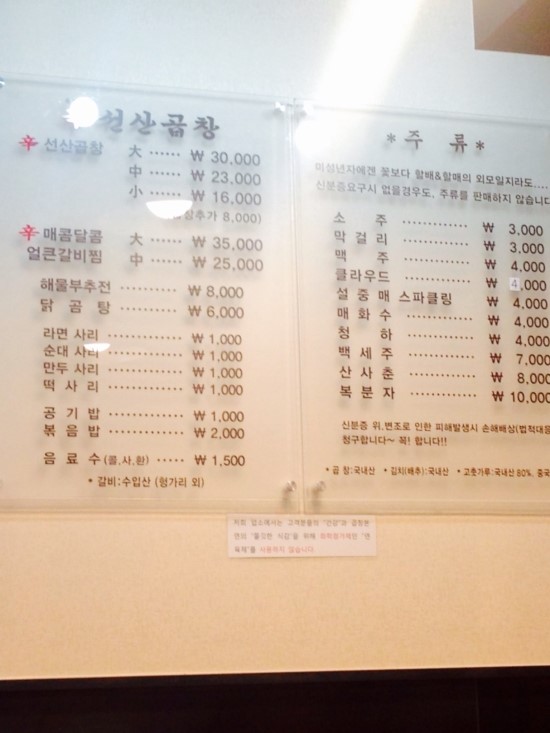 선산곱창
辛 선산곱창 大 ······ ₩ 30,000
中 ······ ₩ 23,000
小 ······ ₩ 16,000
8,000)
辛 매콤달콤 大 ······ ₩ 35,000
얼큰갈비찜 中 ······ ₩ 25,000
해물부추전 ············ ₩ 8,000
닭 곰 탕 ············ ₩ 6,000
라면 사리 ············ ₩ 1,000
순대 사리 ············ ₩ 1,000
만두 사리 ············ ₩ 1,000
떡 사 리 ············ ₩ 1,000
공 기 밥 ············ ₩ 1,000
볶 음 밥 ············ ₩ 2,000
음 료 수 (콜,사,환) ······ ₩ 1,500
* 갈비:수입산 (헝가리 외)
* 주 류 *
미성년자에겐 꽃보다 할배&할매의 외모일지라도.....
신분증요구시 없을경우도, 주류를 판매하지 않습니다
소 주 ············ ₩ 3,000
막 걸 리 ············ ₩ 3,000
맥 주 ············ ₩ 4,000
클라우드 ············ ₩ 4,000
설 중 매 스파클링 ₩ 4,000
매 화 수 ············ ₩ 4,000
청 하 ············ ₩ 4,000
백 세 주 ············ ₩ 7,000
산 사 춘 ············ ₩ 8,000
복 분 자 ············ ₩ 10,000
신분증 위,변조로 인한 피해발생시 손해배상(법적대응
청구합니다~ 꼭! 합니다!!
* 곱 창:국내산 * 김치(배추):국내산 * 고춧가루:국내산 80%, 중국
저희 업소에서는 고객분들의 "건강"과 곱창본
연의 "쫄깃한 식감"을 위해 화학첨가제인 "연
육제"를 사용하지 않습니다.